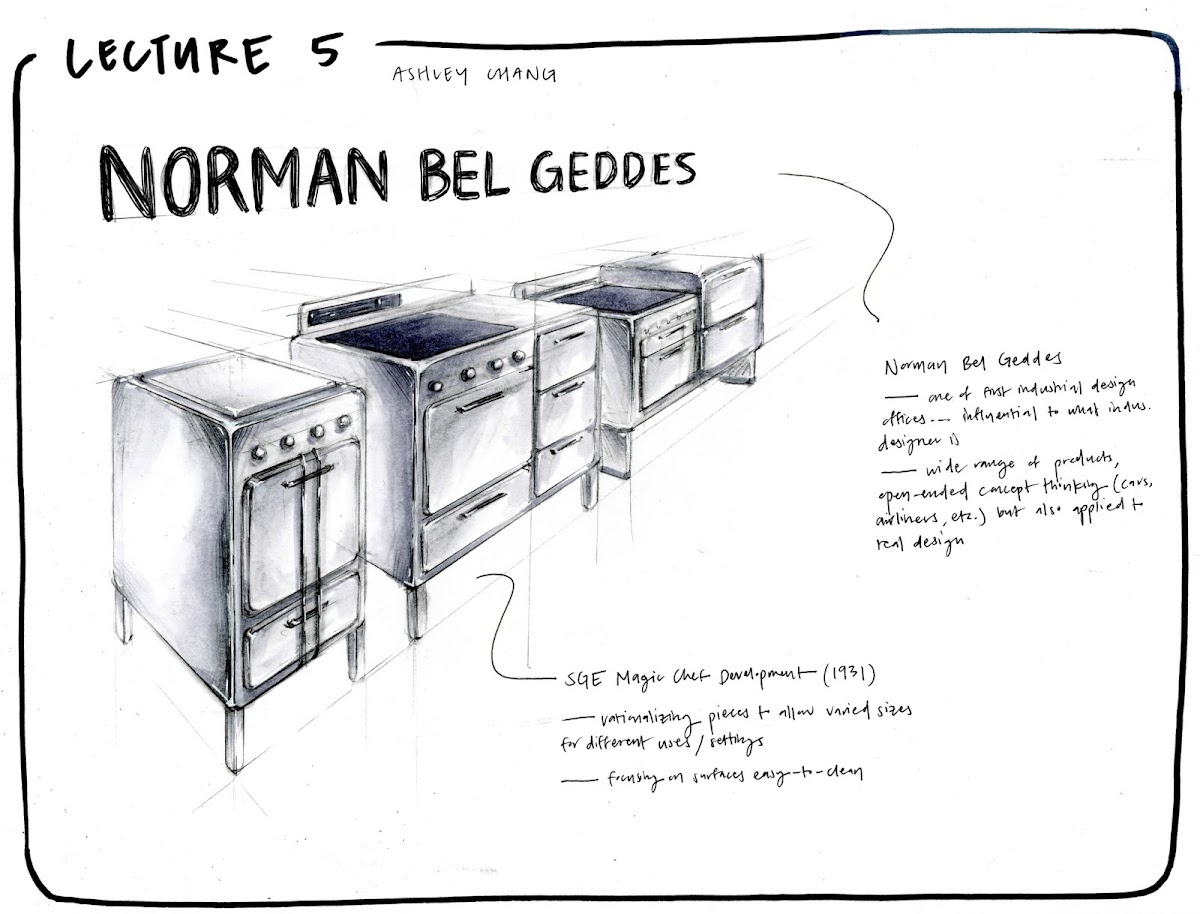 LECTURE 5
ASHLEY CHANG
NORMAN BEL GEDDES
Norman Bel Geddes
— one of first industrial design
offices -- influential to what indus.
designer is
— wide range of products,
open-ended concept thinking (cars,
airliners, etc.) but also applied to
real design
SGE Magic Chef Development (1931)
— rationalizing pieces to allow varied sizes
for different uses / settings
— focusing on surfaces easy-to-clean